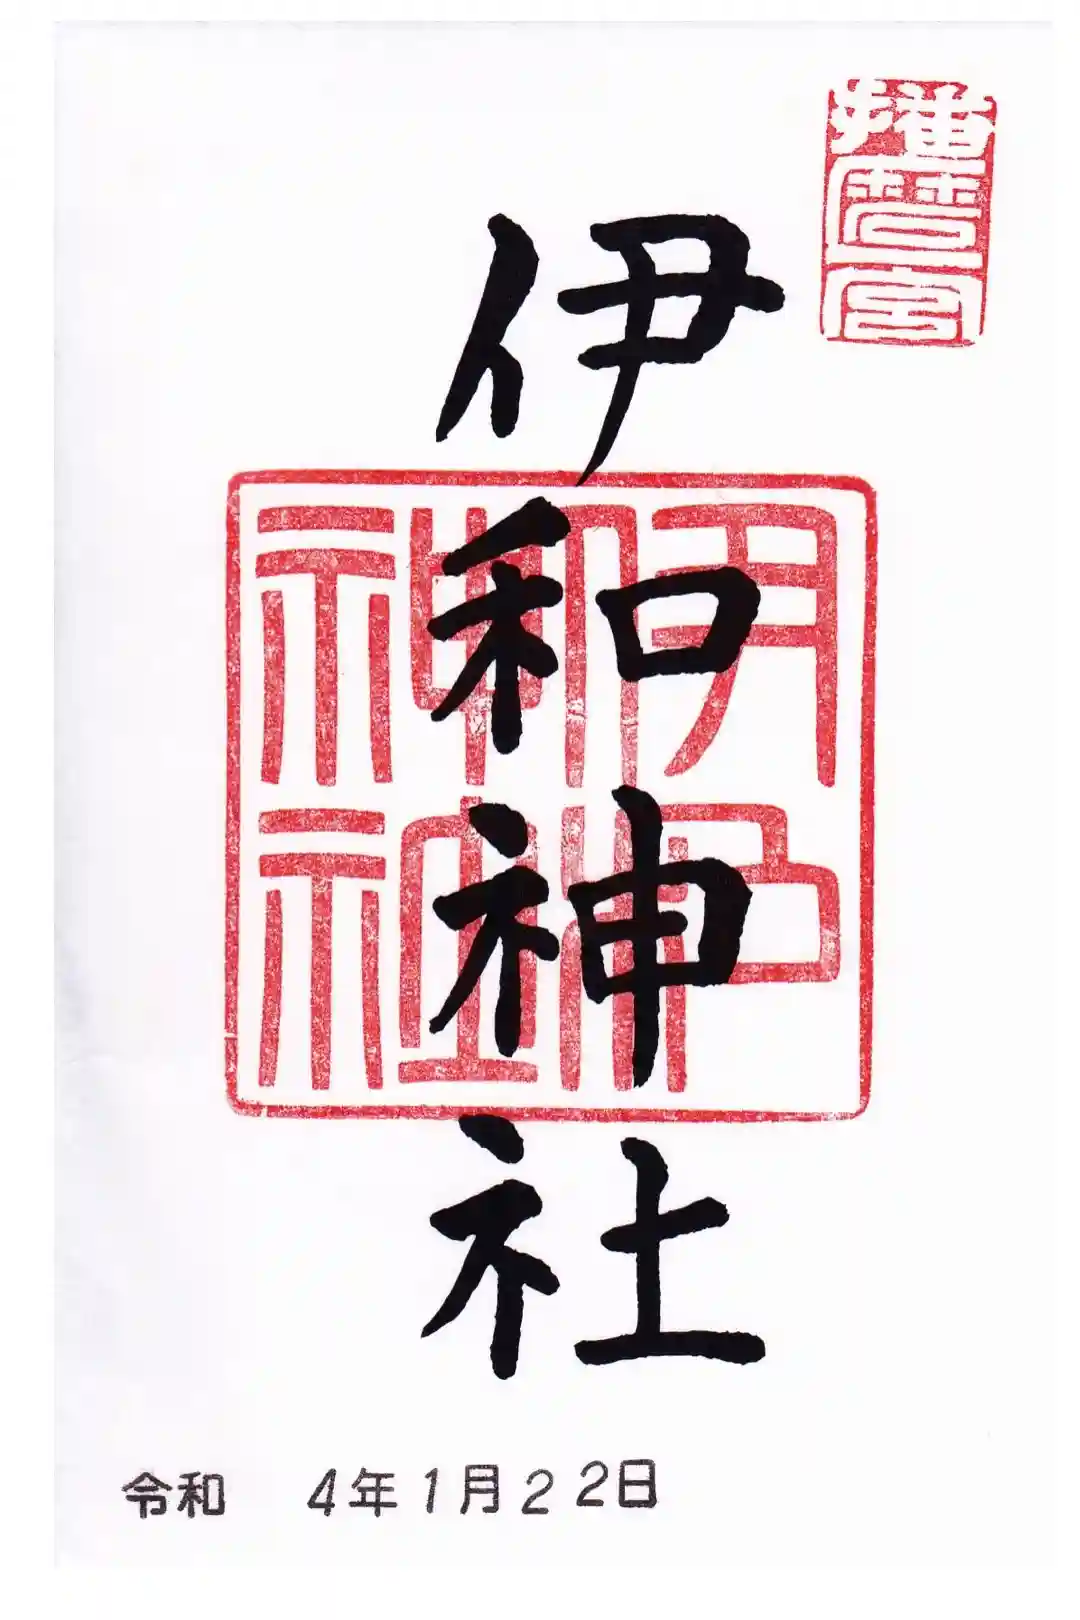 播磨一宮
伊和神社
伊和神社
令和 4年1月22日